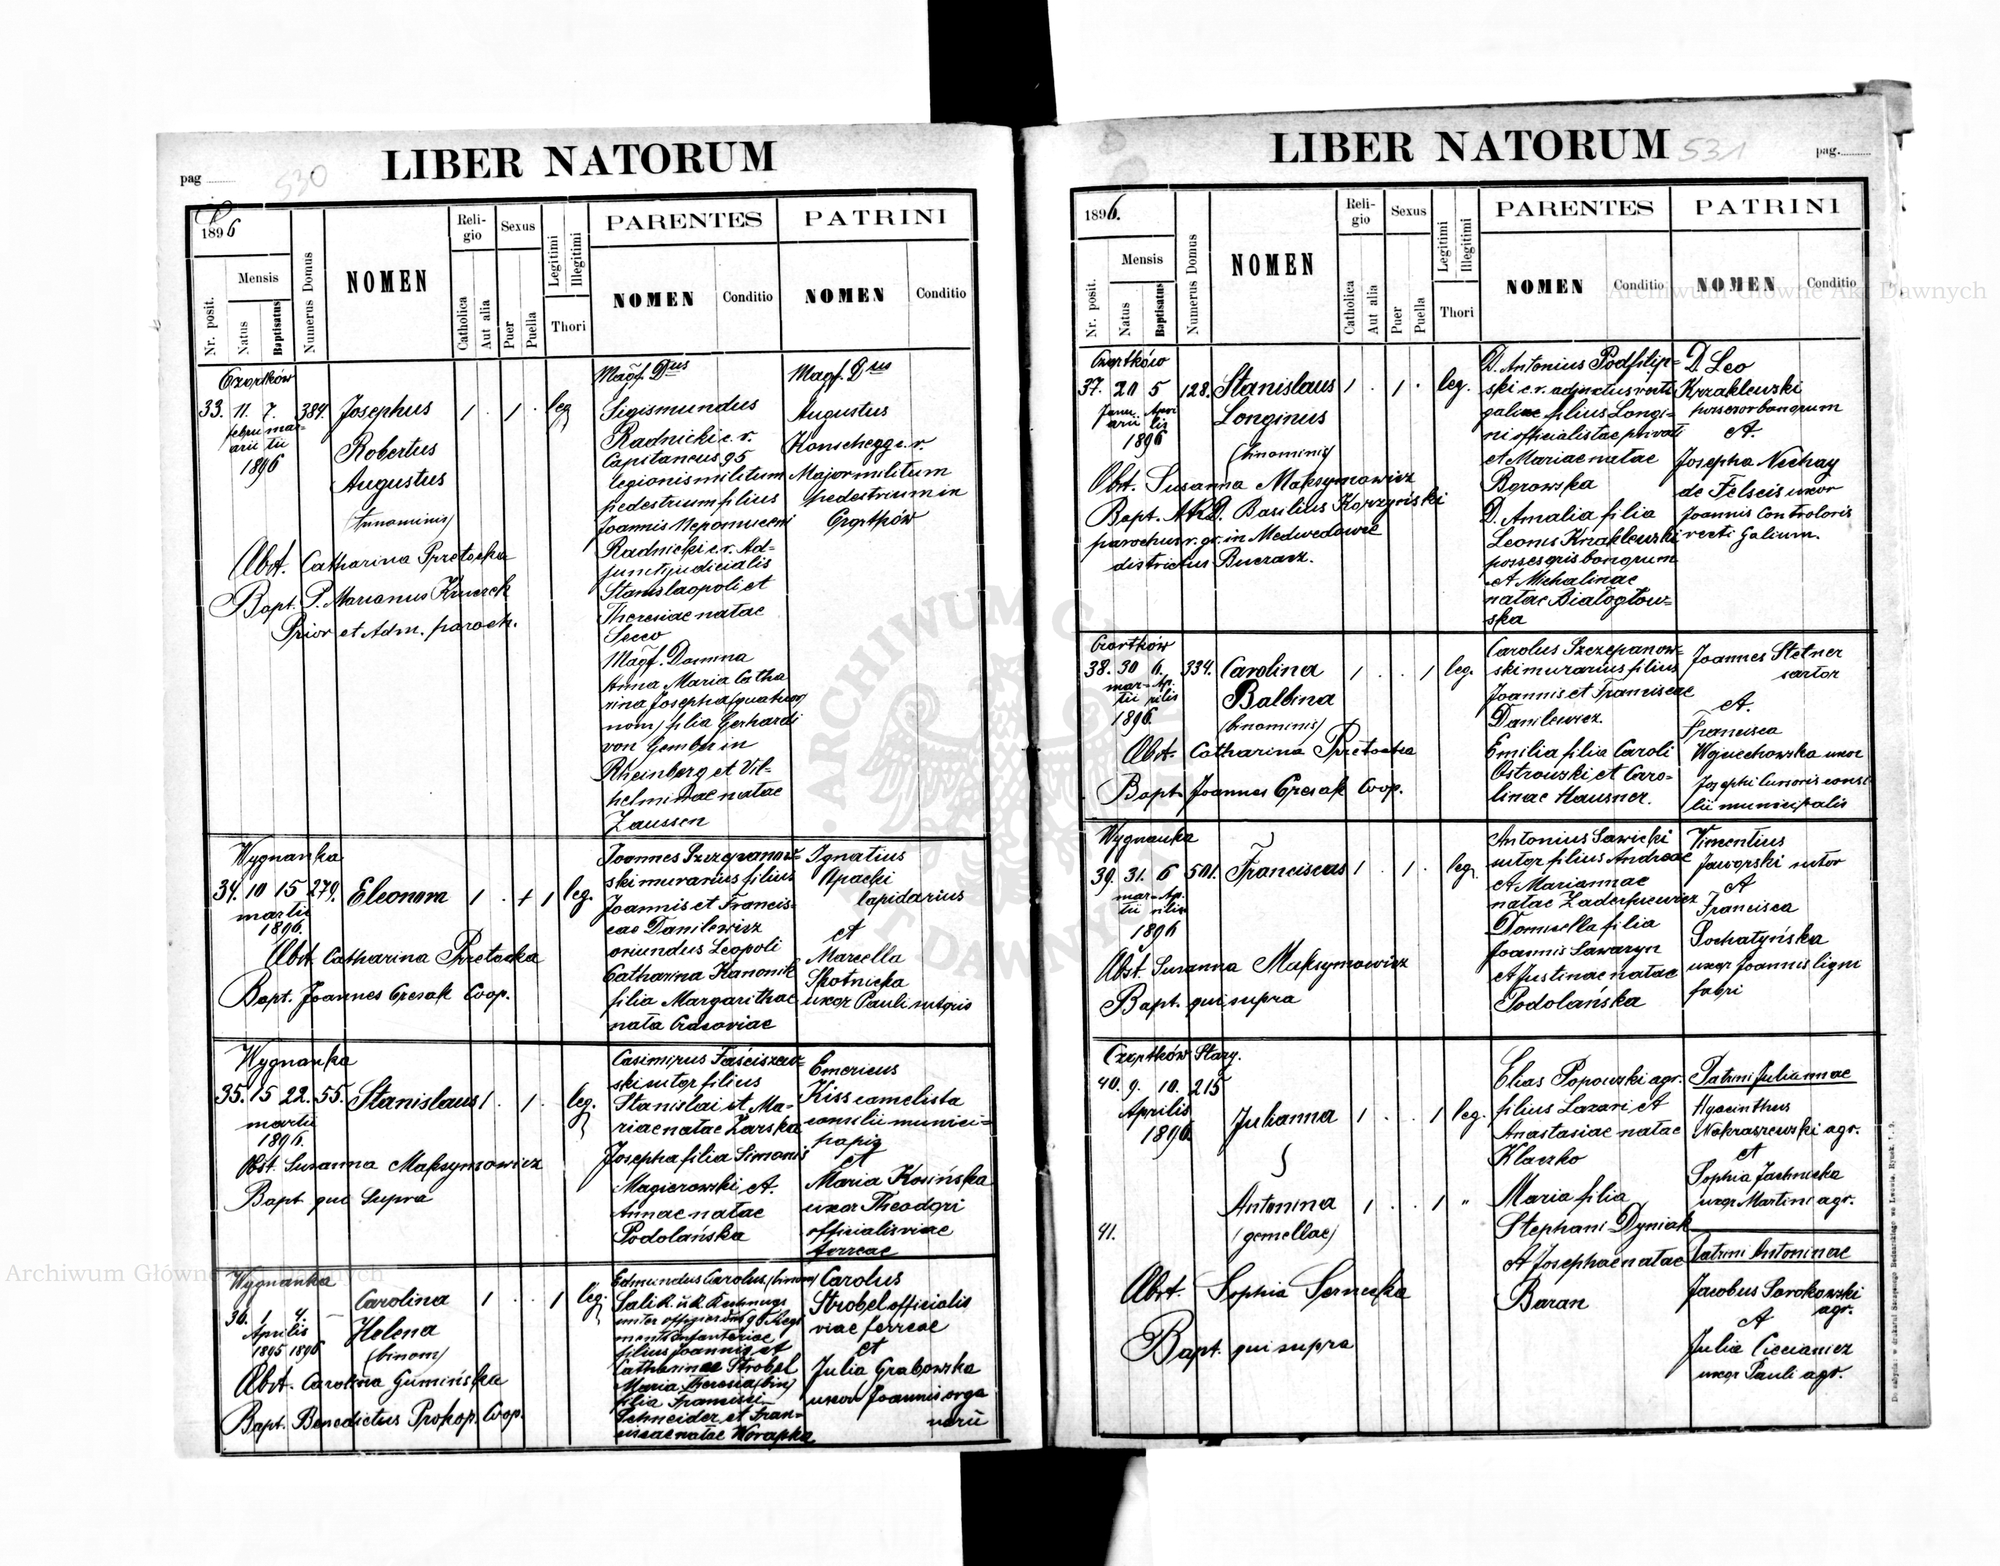 LIBER NATORUM
pag
530
1896
Nr. posit.
Mensis
Natus
Baptisatus
Numerus Domus
NOMEN
Religio
Catholica
Aut alia
Sexus
Puer
Puella
Legitimi
Illegitimi
Thori
PARENTES
NOMEN
Conditio
PATRINI
NOMEN
Conditio
Czortków
33. 11. 7. 384. Josephus 1 . 1 . leg
februarii martii
1896
Robertus
Augustus
(trinominis)
Obst. Catharina Przetocka
Bapt. P. Marianus Kruczek
Prior et Adm. paroch.
Magf. Dnus
Sigismundus
Radnicki c. r.
Capitaneus 95
legionis militum
pedestrium filius
Joannis Nepomuceni
Radnicki c. r. Ad-
juncti judicialis
Stanislaopoli et
Theresiae natae
Secco
Magf. Domina
Anna Maria Catha
rina Josepha (quatuor
nom) filia Gerhardi
von Gember in
Rheinberg et Vil-
helminae natae
Zaussen
Magf. Dnus
Augustus
Konschegg c. r.
Major militum
pedestrium in
Czortków
Wygnanka
34. 10 15 279. Eleonora 1 . + 1 leg.
martii
1896.
Obst. Catharina Przetocka
Bapt. Joannes Czesak Coop.
Joannes Szczepanow-
ski murarius filius
Joannis et Francis-
cae Danilewicz
oriundus Leopoli
Catharina Kanonik
filia Margarithae
nata Cracoviae
Ignatius
Apacki
lapidarius
et
Marcella
Skotnicka
uxor Pauli sutoris
Wygnanka
35. 15 22. 55. Stanislaus 1 . 1 . leg.
martii
1896.
Obst. Susanna Maksymowicz
Bapt. qui supra
Casimirus Faściszew-
ski sutor filius
Stanislai et Ma-
riae natae Zarska
Josepha filia Simonis
Magierowski et.
Annae natae
Podolańska
Emericus
Kiss camelista
consilii munici-
et
Maria Kosińska
uxor Theodori
officialis viae
ferreae
Wygnanka
36. 1 4. — Carolina 1 . . 1 leg.
Aprilis
1895 1896
Helena
(binom)
Obst. Carolina Gumińska
Bapt. Benedictus Prokop. Coop.
Edmundus Carolus (binom)
Salik u. k. Rechnungs
unter offizier des 95 Regi
ments Infanteriae
filius Joannis et
Catharinae Strobel
Maria Theresia (bin)
filia Francisci
Schneider et Fran-
ciscae natae Worapka
Carolus
Strobel officialis
viae ferreae
et
Julia Grabowska
uxor Joannis orga
narii
LIBER NATORUM
531
pag.
1896.
Nr. posit.
Mensis
Natus
Baptisatus
Numerus Domus
NOMEN
Religio
Catholica
Aut alia
Sexus
Puer
Puella
Legitimi
Illegitimi
Thori
PARENTES
NOMEN
Conditio
PATRINI
NOMEN
Conditio
Czortków
37. 20 5 128. Stanislaus 1 . 1 . leg.
Januarii Aprilis
1896
Longinus
(binominis)
Obst. Susanna Maksymowicz
Bapt. A.R.D. Basilius Korzyński
parochus r. gr. in Medwedowce
districtus Buczacz.
D. Antonius Podfilip-
ski c. r. adjunctus vecti
galiae filius Longi-
ni officialistae privati
et Mariae natae
Borowska
D. Amalia filia
Leonis Krzaklewski
possessoris bonorum
et Michalinae
natae Białogłow-
ska
D. Leo
Krzaklewski
possesor bonorum
et.
Josepha Nechay
de Felseis uxor
Joannis Controloris
vecti Galium.
Czortków
38. 30 6. 334. Carolina 1 . . 1 leg.
martii Aprilis
1896
Balbina
(binominis)
Obst. Catharina Przetocka
Bapt. Joannes Czesak Coop.
Carolus Szczepanow-
ski murarius filius
Joannis et Franciscae
Danilewicz
Emilia filia Caroli
Ostrowski et Caro-
linae Hausner.
Joannes Stetner
sartor
et.
Francisca
Wojciechowska uxor
lii municipalis
Wygnanka
39. 31. 6 501. Franciscus 1 . 1 . leg.
martii Aprilis
1896
Obst. Susanna Maksymowicz
Bapt. qui supra
Antonius Sawicki
sutor filius Andreae
et Mariannae
natae Zaderfiewicz
Domicella filia
Joannis Sawaryn
et Justinae natae
Podolańska
Vincentius
Jaworski sutor
et
Francisca
Sochatyńska
uxor Joannis ligni
fabri
Czortków Stary.
40. 9. 10. 215
Aprilis
1896
Julianna 1 . . 1 leg.
41.
Antonina 1 . . 1 "
(gemellae)
Obst. Sophia Sernecka
Bapt. qui supra
Elias Popowski agr.
filius Lazari et
Anastasiae natae
Klaczko
Maria filia
Stephani Dyniak
et Josephae natae
Baran
Patrini Juliannae
Hyacinthus
Nakraszewski agr.
et
Sophia Jachnicka
uxor Martini agr.
Patrini Antoninae
Jacobus Sorokowski
agr.
et
Julia Ciecianicz
uxor Pauli agr.
Archiwum Główne Akt Dawnych